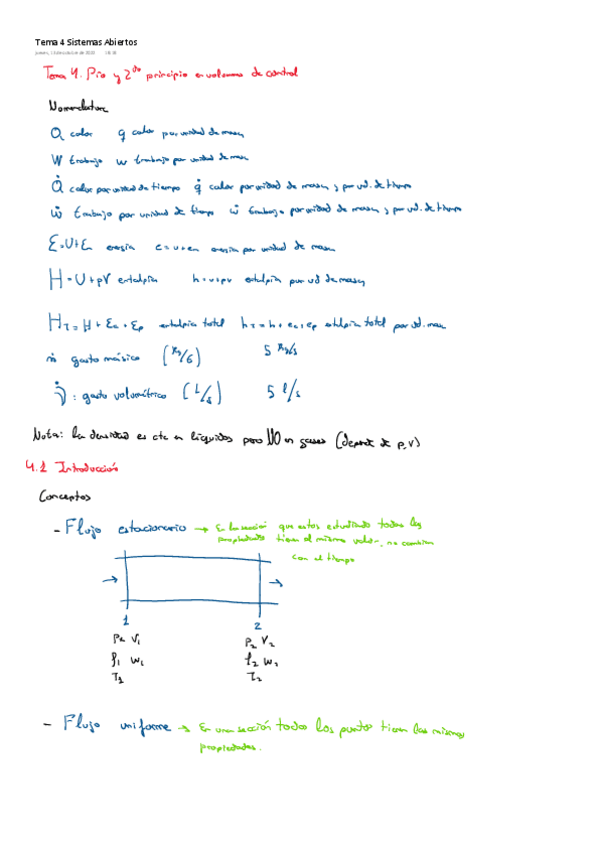 Tema 4 Sistemas Abiertos
Tema 4. Pio y 2do principio en volumen de control
Nomenclatura
Q calor q calor por unidad de masa
W trabajo w trabajo por unidad de masa
Q̇ calor por unidad de tiempo q̇ calor por unidad de masa y por ud. de tiempo
Ẇ trabajo por unidad de tiempo ẇ trabajo por unidad de masa y por ud. de tiempo
E=U+Em energía e=u+em energía por unidad de masa
H=U+pV entalpía h=u+pv entalpía por ud de masa
HT=H+Ec+Ep entalpía total hT=h+ec+ep entalpía total por ud. masa
ṁ gasto másico (kg/s) 5 kg/s
: gasto volumétrico (L/s) 5 l/s
Nota: la densidad es cte en líquidos pero NO en gases (depende de p,V)
4.1 Introducción
Conceptos
- Flujo estacionario → En la sección que estés estudiando todas las
propiedades tienen el mismo valor, no cambian
con el tiempo
1 2
P1 V1 P2 V2
ρ1 w1 ρ2 w2
T1 T2
- Flujo uniforme → En una sección todos los puntos tienen las mismas
propiedades.